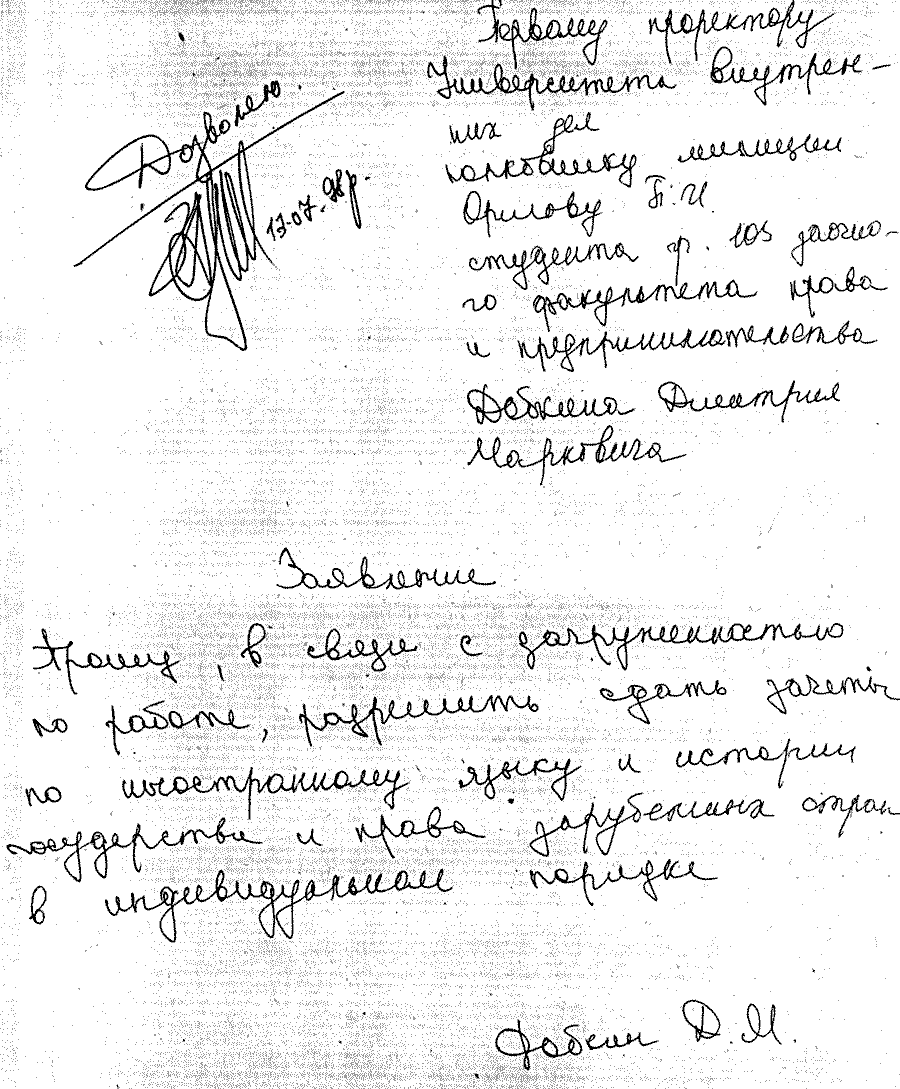 Первому проректору
Университета внутрен-
них дел
полковнику милиции
Орлову П.И.
студента гр. 103 заочно-
го факультета права
и предпринимательства
Добкина Дмитрия
Марковича
Дозволяю.
17.07.98р.
Заявление
Прошу, в связи с загруженностью
по работе, разрешить сдать зачеты
по иностранному языку и истории
государства и права зарубежных стран
в индивидуальном порядке
Добкин Д.М.